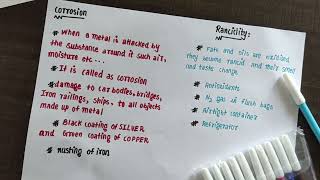 Corrosion
* When a metal is attacked by
the substance around it such air,
moisture etc...
* It is called as corrosion
* damage to car bodies, bridges,
Iron railings, ships, to all objects
made up of metal
* Black coating of SILVER
and Green coating of COPPER
* Rusting of iron
Rancidity:
* Fats and oils are oxidised
they become rancid and their smell
and taste change.
* Antioxidants
* N₂ gas in flush bags
* Airtight container
* Refrigerator